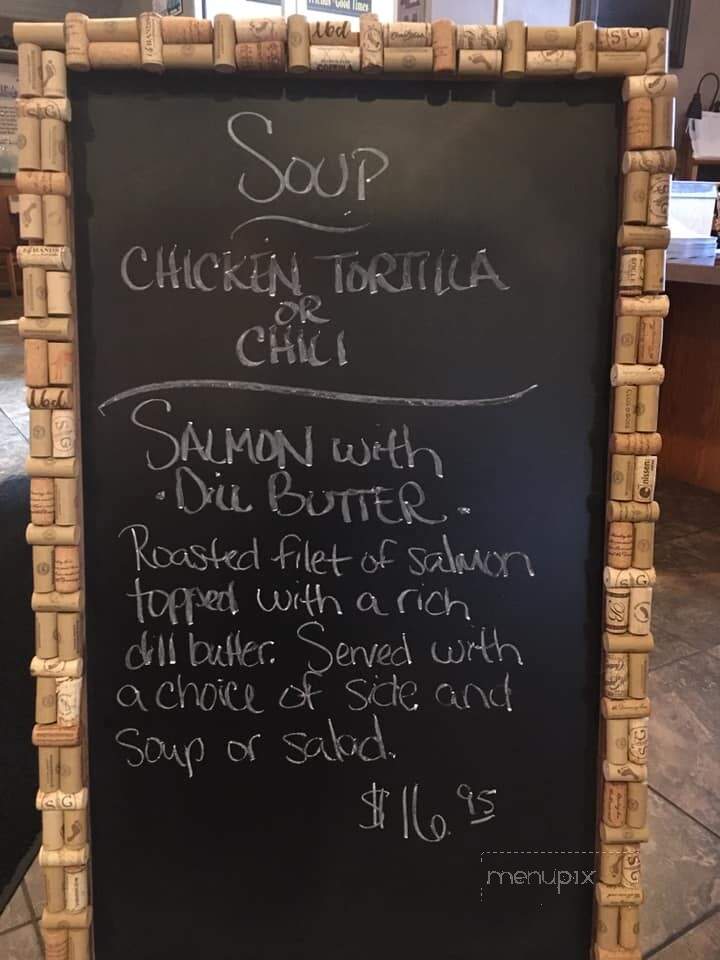 Soup
CHICKEN TORTILLA
OR
CHILI
SALMON with
. Dill BUTTER .
Roasted filet of salmon
topped with a rich
dill butter. Served with
a choice of side and
soup or salad.
$16.95
menupix